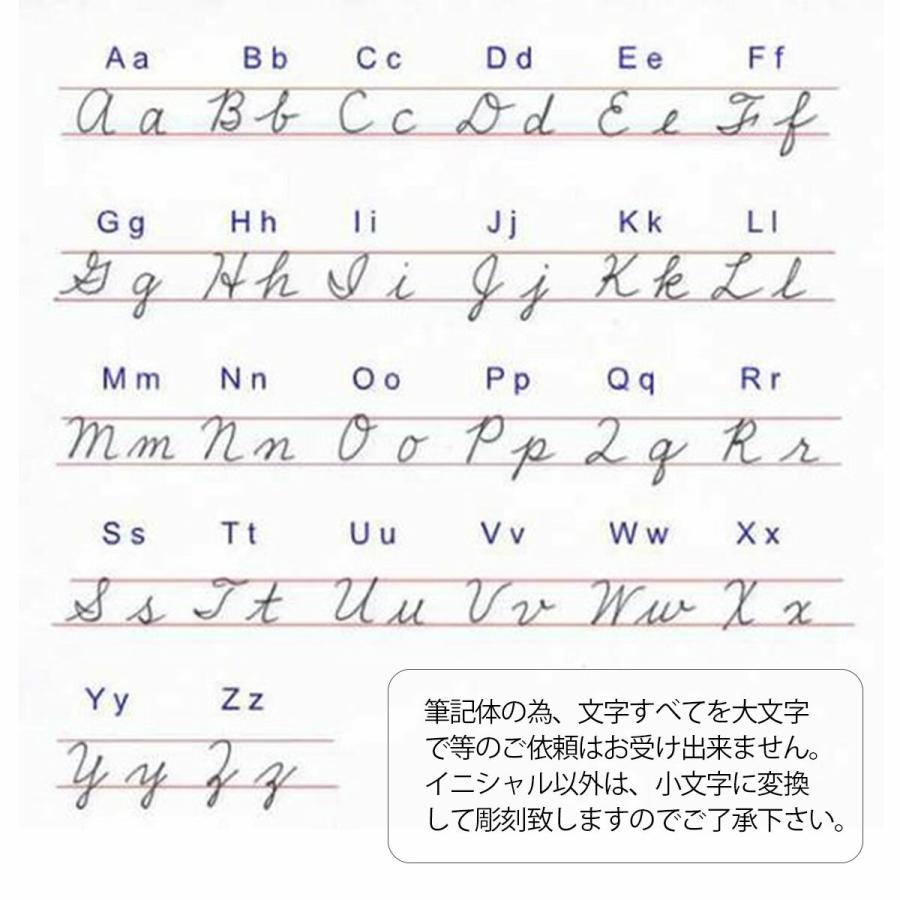 Aa Bb Cc Dd Ee Ff
A a B b C c D d E e F f
Gg Hh Ii Jj Kk Ll
G g H h I i J j K k L l
Mm Nn Oo Pp Qq Rr
M m N n O o P p Q q R r
Ss Tt Uu Vv Ww Xx
S s T t U u V v W w X x
Yy Zz
Y y Z z
筆記体の為、文字すべてを大文字
で等のご依頼はお受け出来ません。
イニシャル以外は、小文字に変換
して彫刻致しますのでご了承下さい。